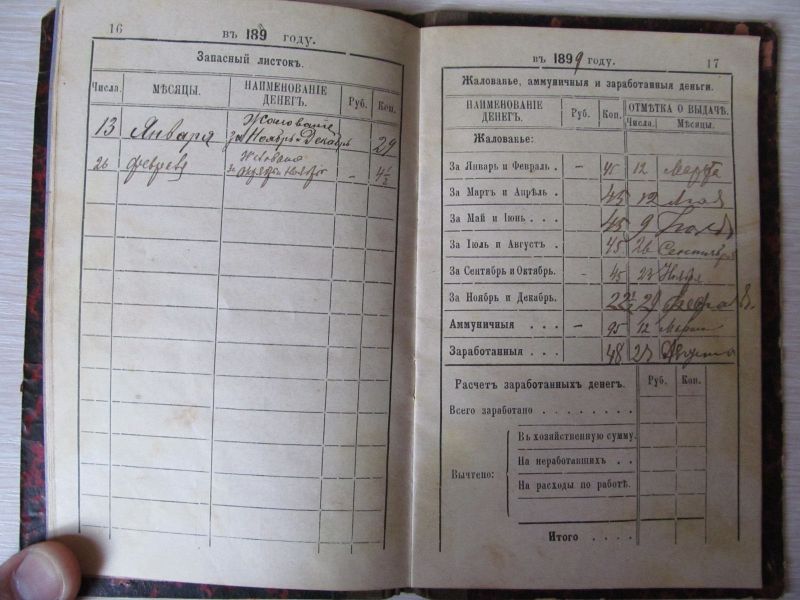 16
въ 1899 году.
Запасный листокъ.
Числа. МѢСЯЦЫ. НАИМЕНОВАНІЕ ДЕНЕГЪ. Руб. Коп.
13 Января Жалование
за Ноябрь и Декабрь 29
26 февраля - 4 1/2
въ 1899 году. 17
Жалованье, аммуничныя и заработанныя деньги.
НАИМЕНОВАНІЕ ДЕНЕГЪ. Руб. Коп. ОТМѢТКА О ВЫДАЧѢ.
Числа. Мѣсяцы.
Жалованье:
За Январь и Февраль . - 45 12 Марта
За Мартъ и Апрѣль . 45 12 Мая
За Май и Іюнь . . . 45 9
За Іюль и Августъ . 45 26 Сентября
За Сентябрь и Октябрь. - 45 23 Ноября
За Ноябрь и Декабрь. 22 1/2
Аммуничныя . . . - 95 12 Марта
Заработанныя . . . 48 27 Августа
Расчетъ заработанныхъ денегъ. Руб. Коп.
Всего заработано . . . . . . . .
Вычтено:
Въ хозяйственную сумму.
На неработавшихъ . .
На расходы по работѣ.
Итого . . . .